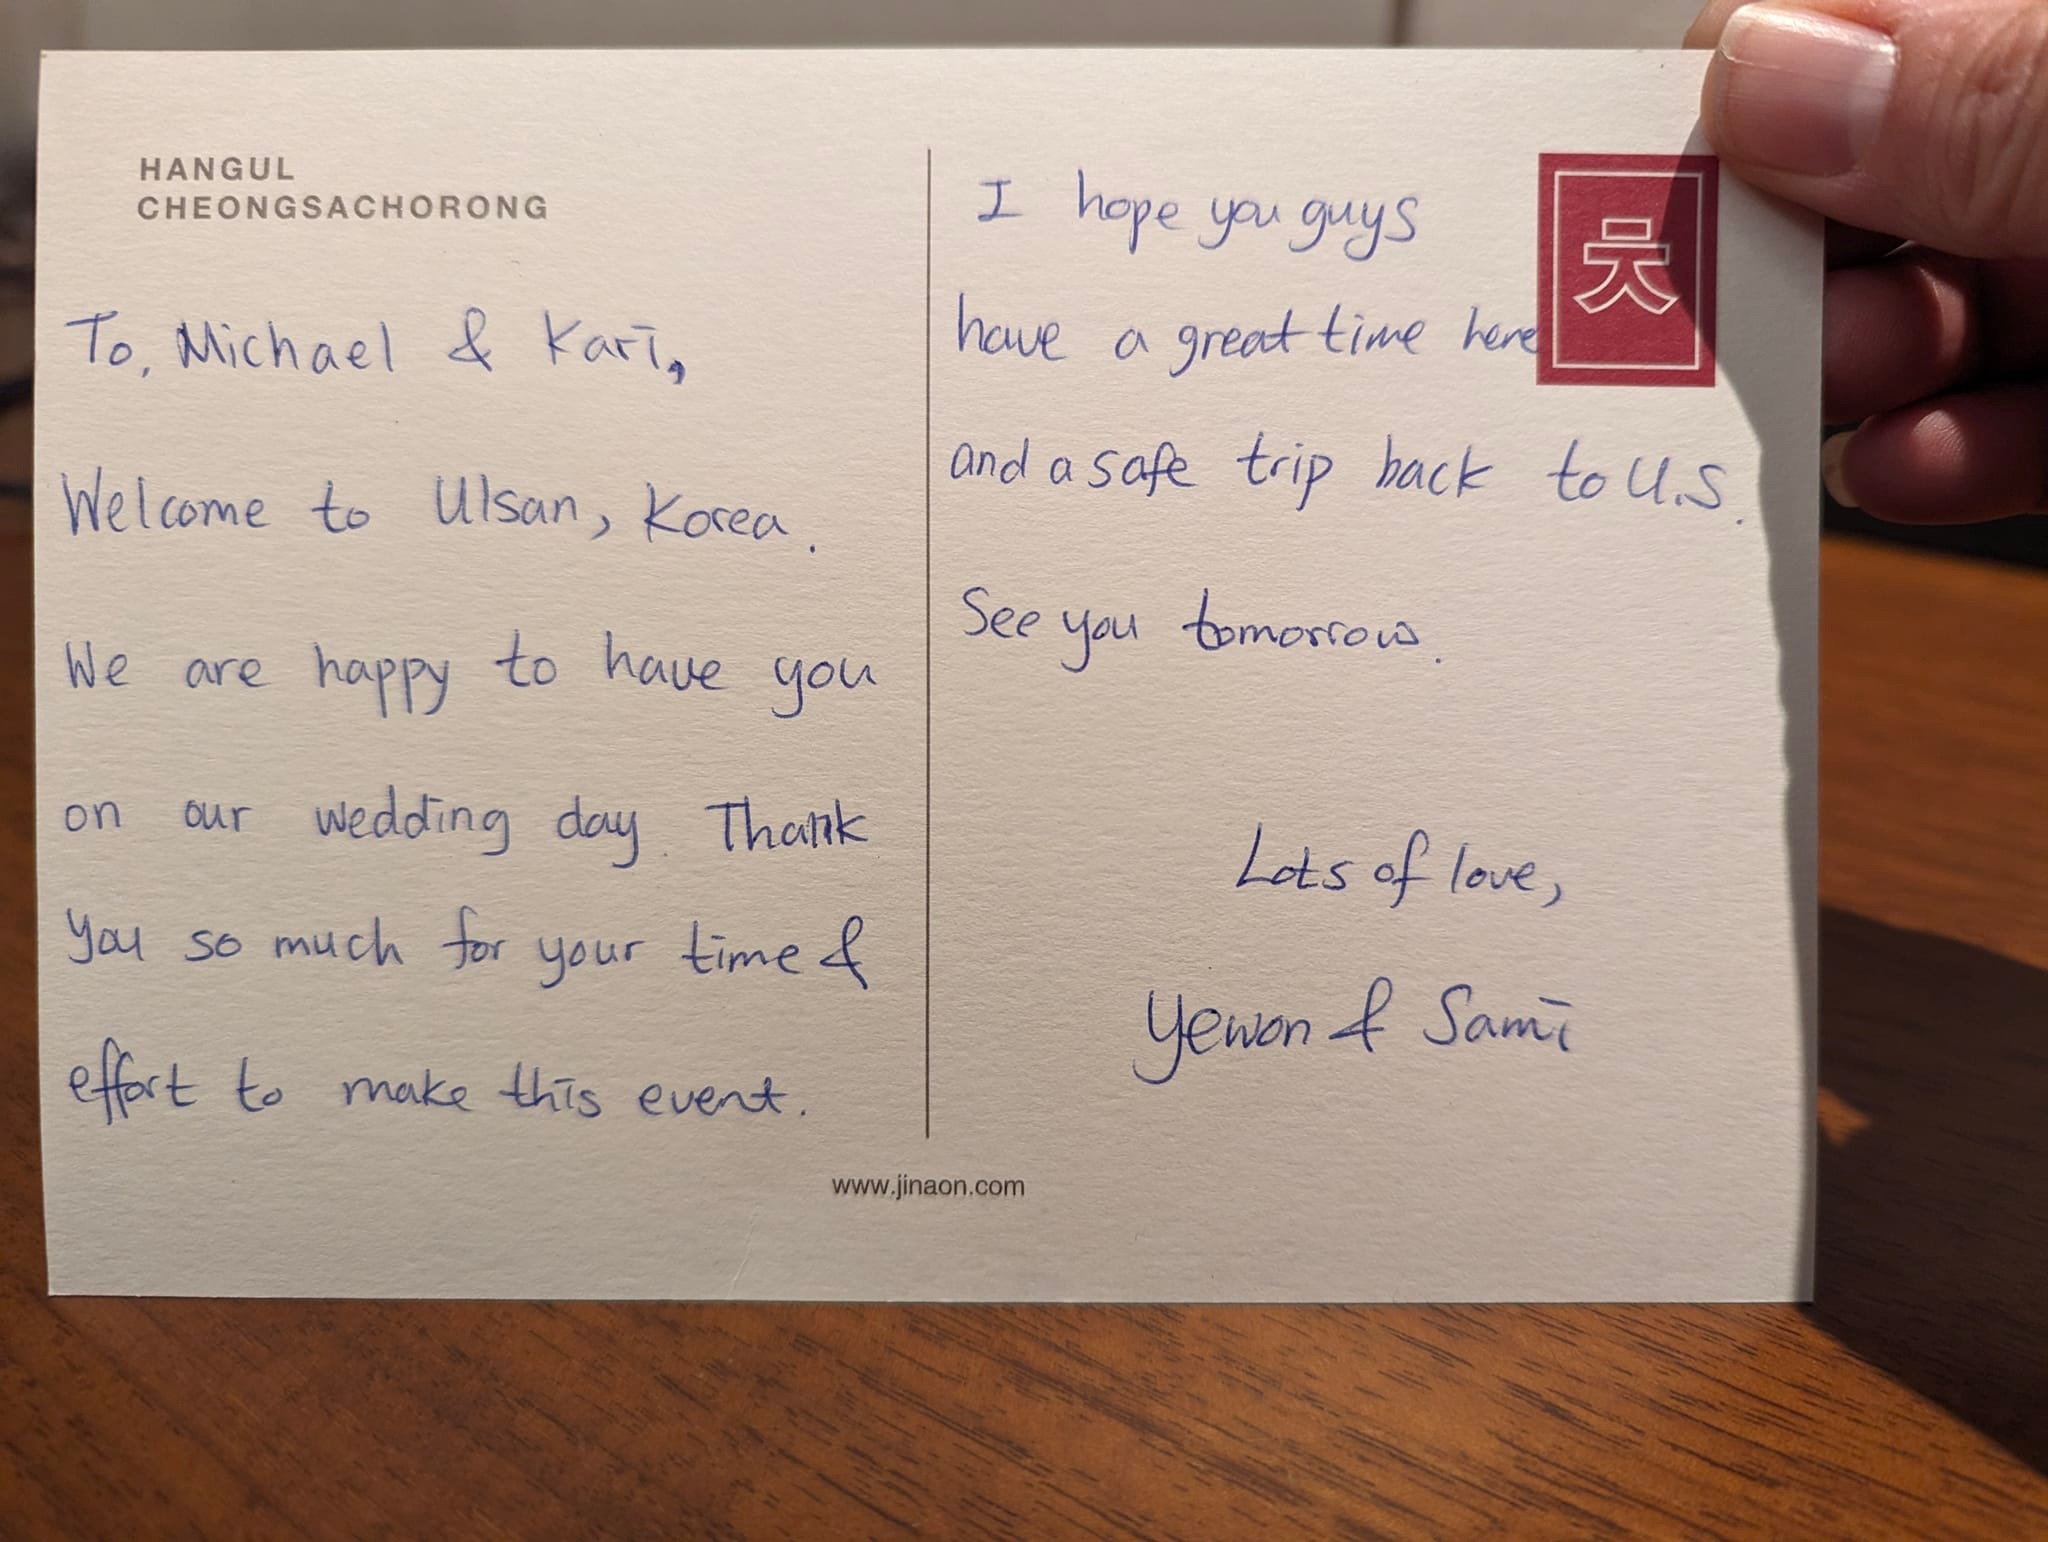 HANGUL
CHEONGSACHORONG
To, Michael & Kari,
Welcome to Ulsan, Korea.
We are happy to have you
on our wedding day. Thank
you so much for your time &
effort to make this event.
I hope you guys
have a great time here
and a safe trip back to U.S.
See you tomorrow.
Lots of love,
Yewon & Sami
www.jinaon.com